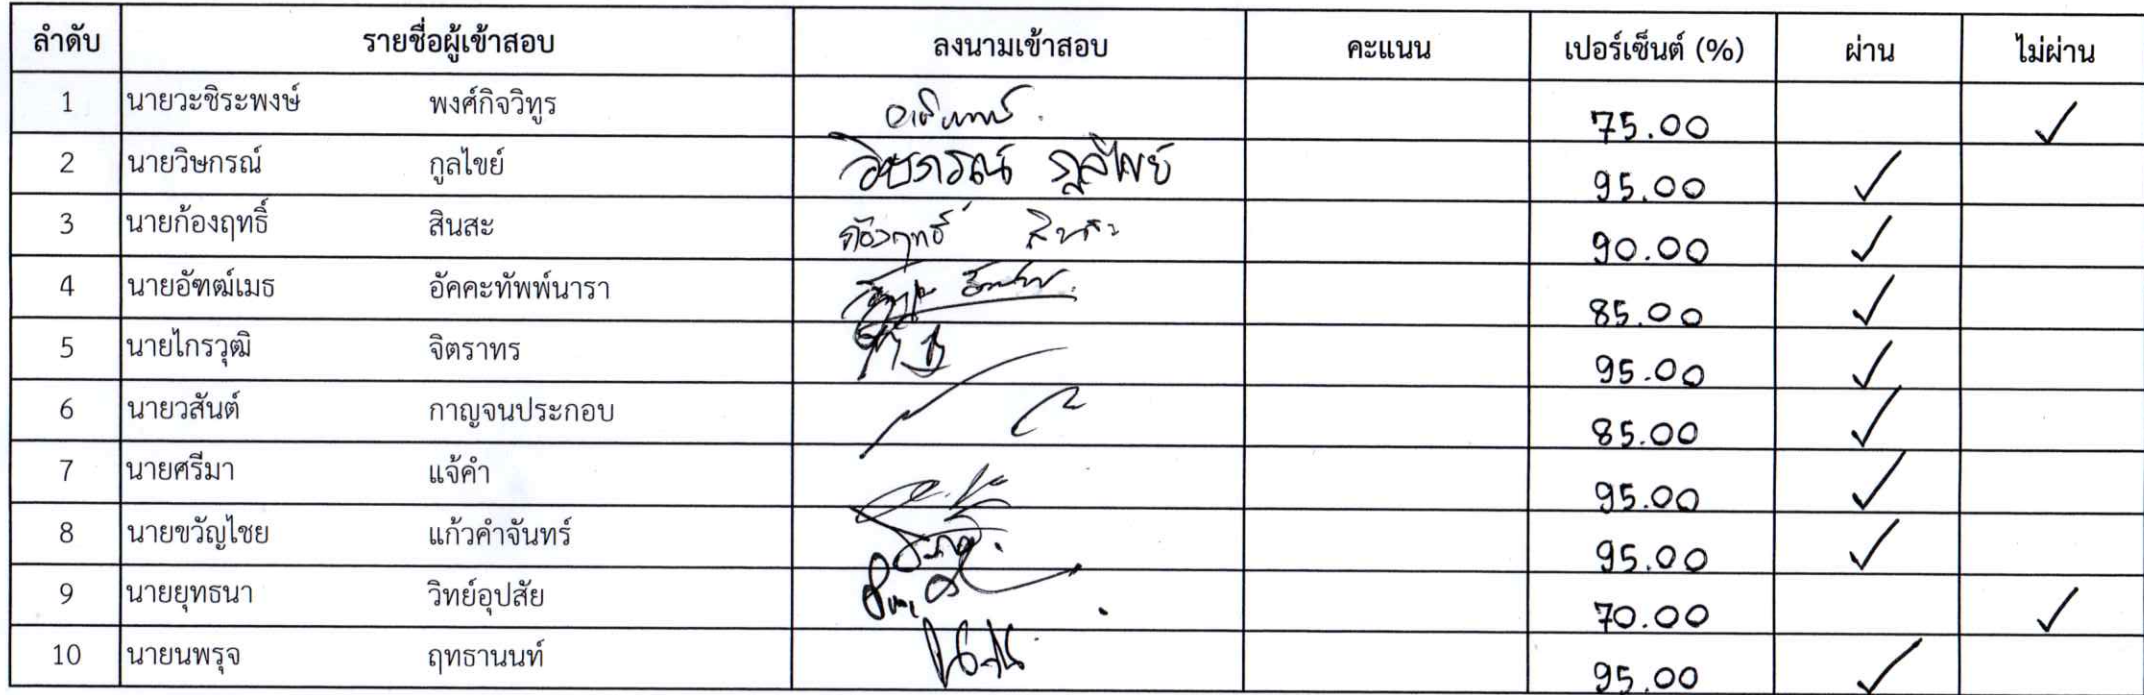 ลำดับ รายชื่อผู้เข้าสอบ ลงนามเข้าสอบ คะแนน เปอร์เซ็นต์ (%) ผ่าน ไม่ผ่าน
1 นายวะชิระพงษ์ พงศ์กิจวิทูร 75.00 ✓
2 นายวิษกรณ์ กูลไขย์ วิษกรณ์ กูลไขย์ 95.00 ✓
3 นายก้องฤทธิ์ สินสะ ก้องฤทธิ์ สินสะ 90.00 ✓
4 นายอัฑฒ์เมธ อัคคะทัพพ์นารา 85.00 ✓
5 นายไกรวุฒิ จิตราทร 95.00 ✓
6 นายวสันต์ กาญจนประกอบ 85.00 ✓
7 นายศรีมา แจ้คำ 95.00 ✓
8 นายขวัญไชย แก้วคำจันทร์ 95.00 ✓
9 นายยุทธนา วิทย์อุปสัย 70.00 ✓
10 นายนพรุจ ฤทธานนท์ 95.00 ✓